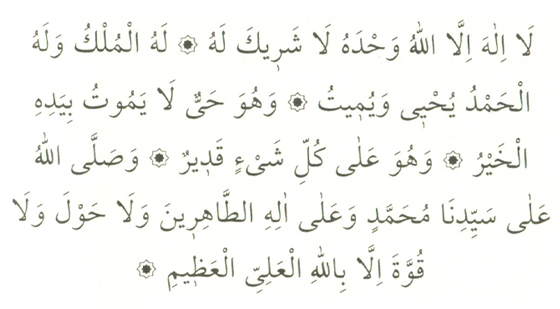 لَا اِلٰهَ اِلَّا اللهُ وَحْدَهُ لَا شَرٖيكَ لَهُ ۞ لَهُ الْمُلْكُ وَلَهُ
الْحَمْدُ يُحْيٖى وَيُمٖيتُ ۞ وَهُوَ حَىٌّ لَا يَمُوتُ بِيَدِهِ
الْخَيْرُ ۞ وَهُوَ عَلٰى كُلِّ شَىْءٍ قَدٖيرٌ ۞ وَصَلَّى اللهُ
عَلٰى سَيِّدِنَا مُحَمَّدٍ وَعَلٰى اٰلِهِ الطَّاهِرٖينَ وَلَا حَوْلَ وَلَا
قُوَّةَ اِلَّا بِاللهِ الْعَلِىِّ الْعَظٖيمِ ۞